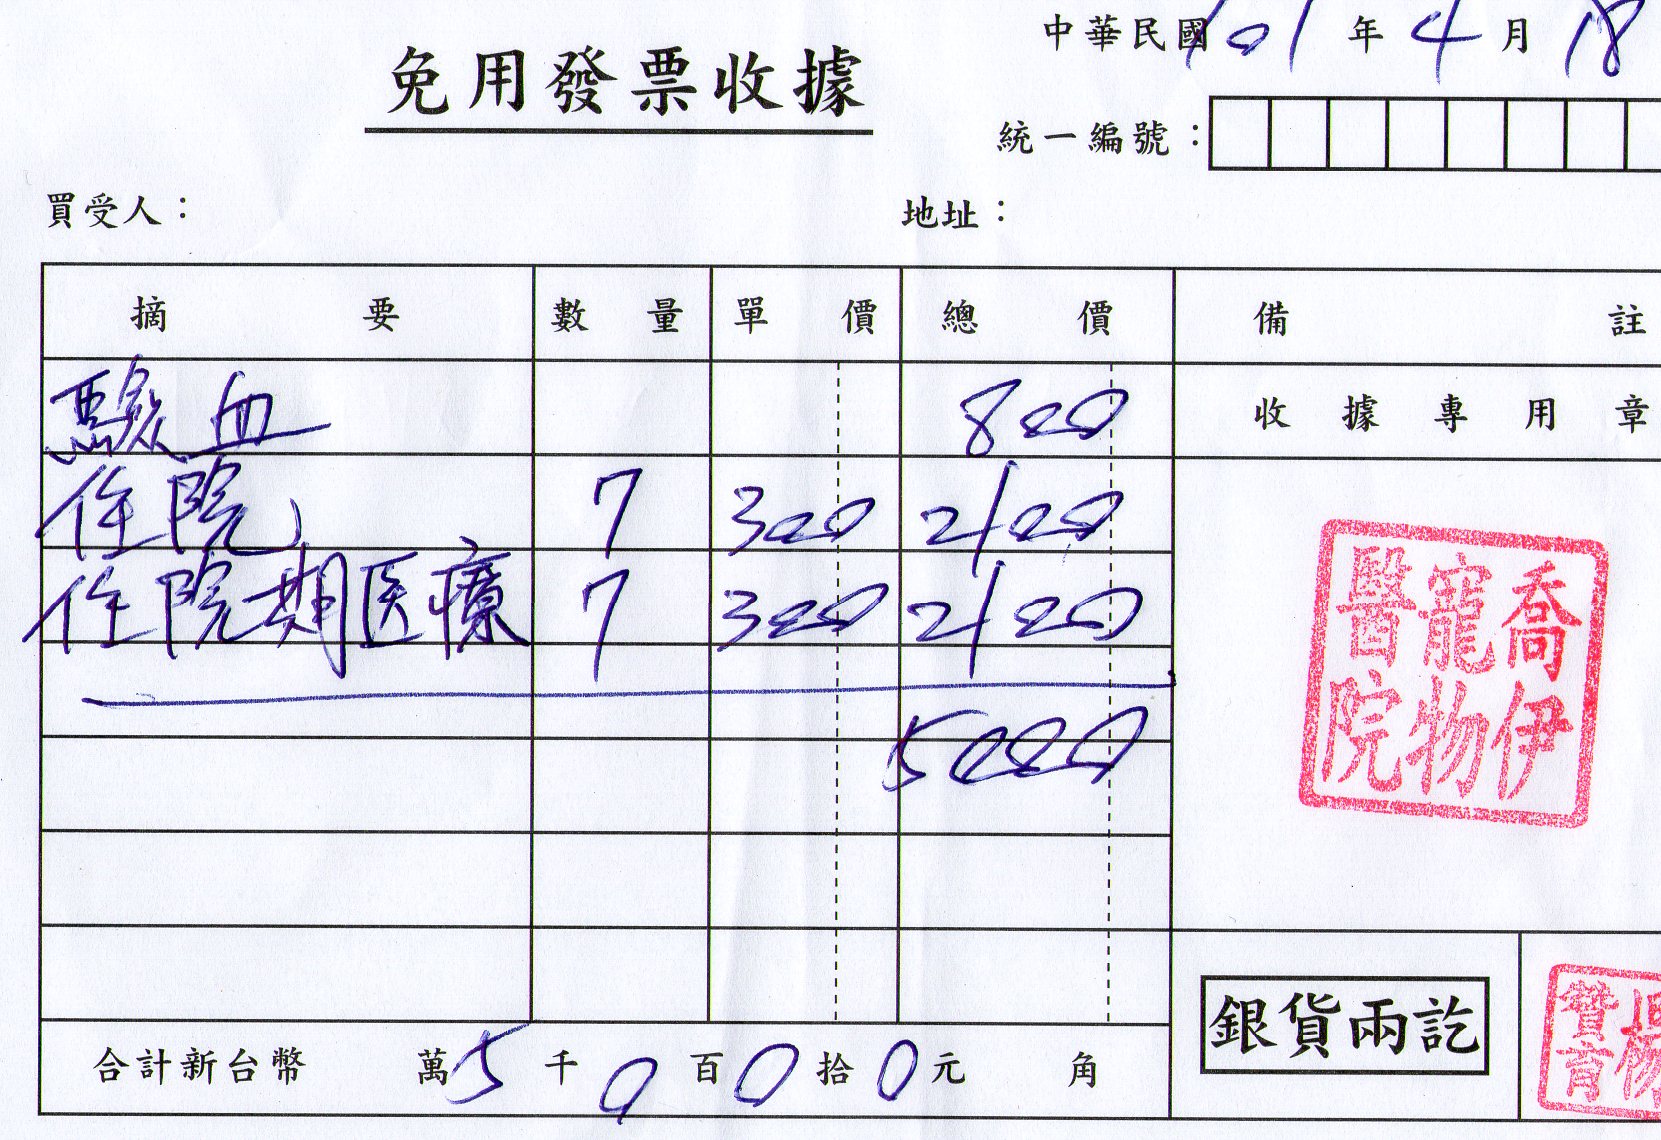 中華民國101年4月18
免用發票收據
統一編號：
買受人： 地址：
摘要 數量 單價 總價 備註
驗血 800 收據專用章
住院 7 300 2100
住院期医療 7 300 2100
5000
喬伊
寵物
醫院
合計新台幣 萬5千0百0拾0元 角
銀貨兩訖
楊
贊育